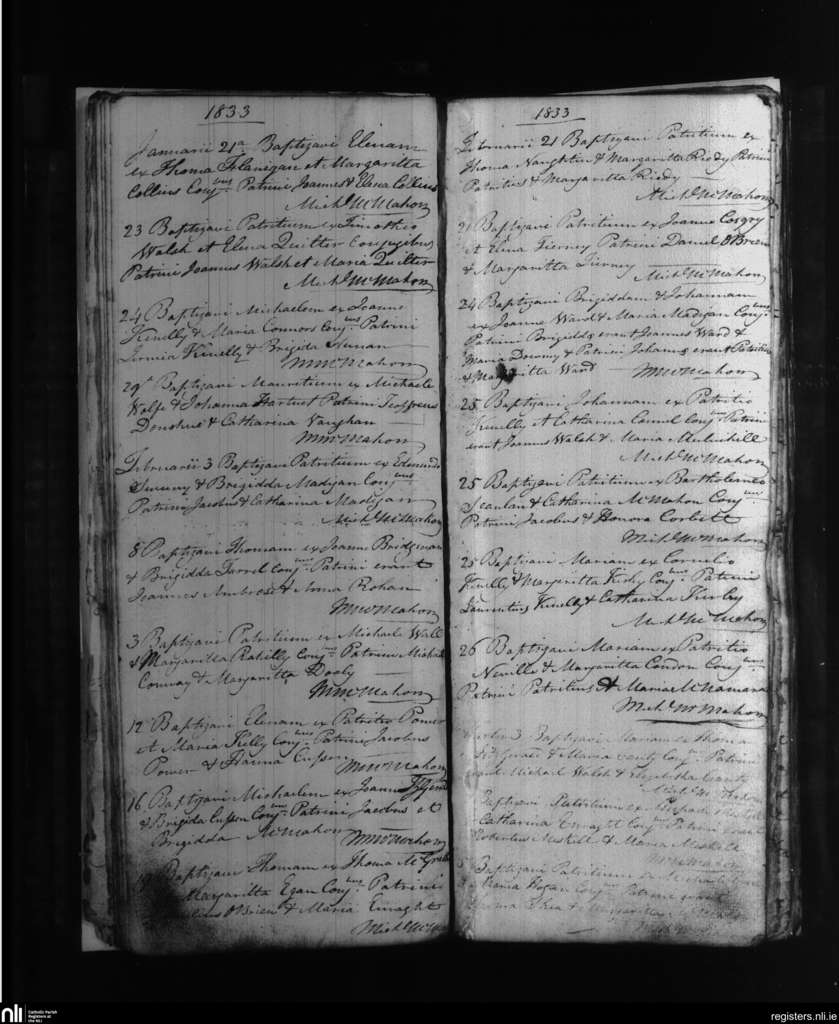 1833
Januarii 21a Baptizavi Elenam
ex Thoma Flanigan et Margaritta
Collins Conj Patrini Joannes & Elena Collins
Michl McMahon
23 Baptizavi Patritium ex Timotheo
Walsh et Elena Quilter Conjugibus
Patrini Joannes Walsh et Maria Quilter
Michl McMahon
24 Baptizavi Michaelem ex Joanne
Kenelly & Maria Connors Conj Patrini
Kenelly & Brigida
McMahon
29 Baptizavi Mauritium ex Michaele
Wolfe & Johanna Hartnet Patrini
Donohue & Catharina Vaughan
McMahon
Februarii 3 Baptizavi Patritium ex Edmundo
Sweeny & Brigidda Madigan Conj
Patrini Jacobus & Catharina Madigan
Michl McMahon
8 Baptizavi Thomam ex Joanne Bridgeman
& Brigidda Farrel Conj Patrini erant
Joannes Ambrose & Anna Rohan
McMahon
3 Baptizavi Patritium ex Michaele Wall
& Margaritta Conj Patrini Michael
Conway & Margaritta Dooly
McMahon
12 Baptizavi Elenam ex Patritio Power
et Maria Kelly Conj Patrini Jacobus
Power & Hanna
McMahon
16 Baptizavi Michaelem ex Joanne
& Brigida Conj Patrini Jacobus et
Brigidda McMahon
McMahon
Baptizavi Thomam ex Thoma McGrath
Margaritta Egan Conj Patrini
O'Brien & Maria Enaght
Michl
1833
Februarii 21 Baptizavi Patritium ex
Thoma Naughtin & Margaritta Reidy Patrini
Patritius & Margaritta Reidy
Michl McMahon
21 Baptizavi Patritium ex Joanne Cosgry
et Elena Tierney Patrini Daniel O'Brien
& Margaritta Tierney
Michl McMahon
24 Baptizavi Brigiddam & Johannam
ex Joanne Ward & Maria Madigan Conj
Patrini Brigidda erant Joannes Ward &
Maria & Patrini Johanna erant Patritius
& Margaritta Ward McMahon
25 Baptizavi Johannam ex Patritio
Kenelly et Catharina Connel Conj Patrini
erant Joannes Walsh & Maria
Michl McMahon
25 Baptizavi Patritium ex Bartholomeo
Scanlan & Catharina McMahon Conj
Patrini Jacobus & Honora Corbett
Michl McMahon
25 Baptizavi Mariam ex Cornelio
Kenelly & Margaritta Kirby Conj Patrini
Laurentius Kenelly & Catharina Kirby
Michl McMahon
26 Baptizavi Mariam ex Patritio
Neville & Margaritta Condon Conj
Patrini Patritius & Maria McNamara
Michl McMahon
3 Baptizavi Mariam ex Thoma
& Maria Conj Patrini
erant Michael Walsh & Elizabetha
Baptizavi Patritium ex
Catharina Enaght Conj Patrini erant
Robertus Meskell & Maria Meskell
McMahon
Baptizavi Patritium ex Michaele
Maria Hogan Conj Patrini erant
Shea & Margaritta
nli
Catholic Parish
Registers at
the NLI
registers.nli.ie